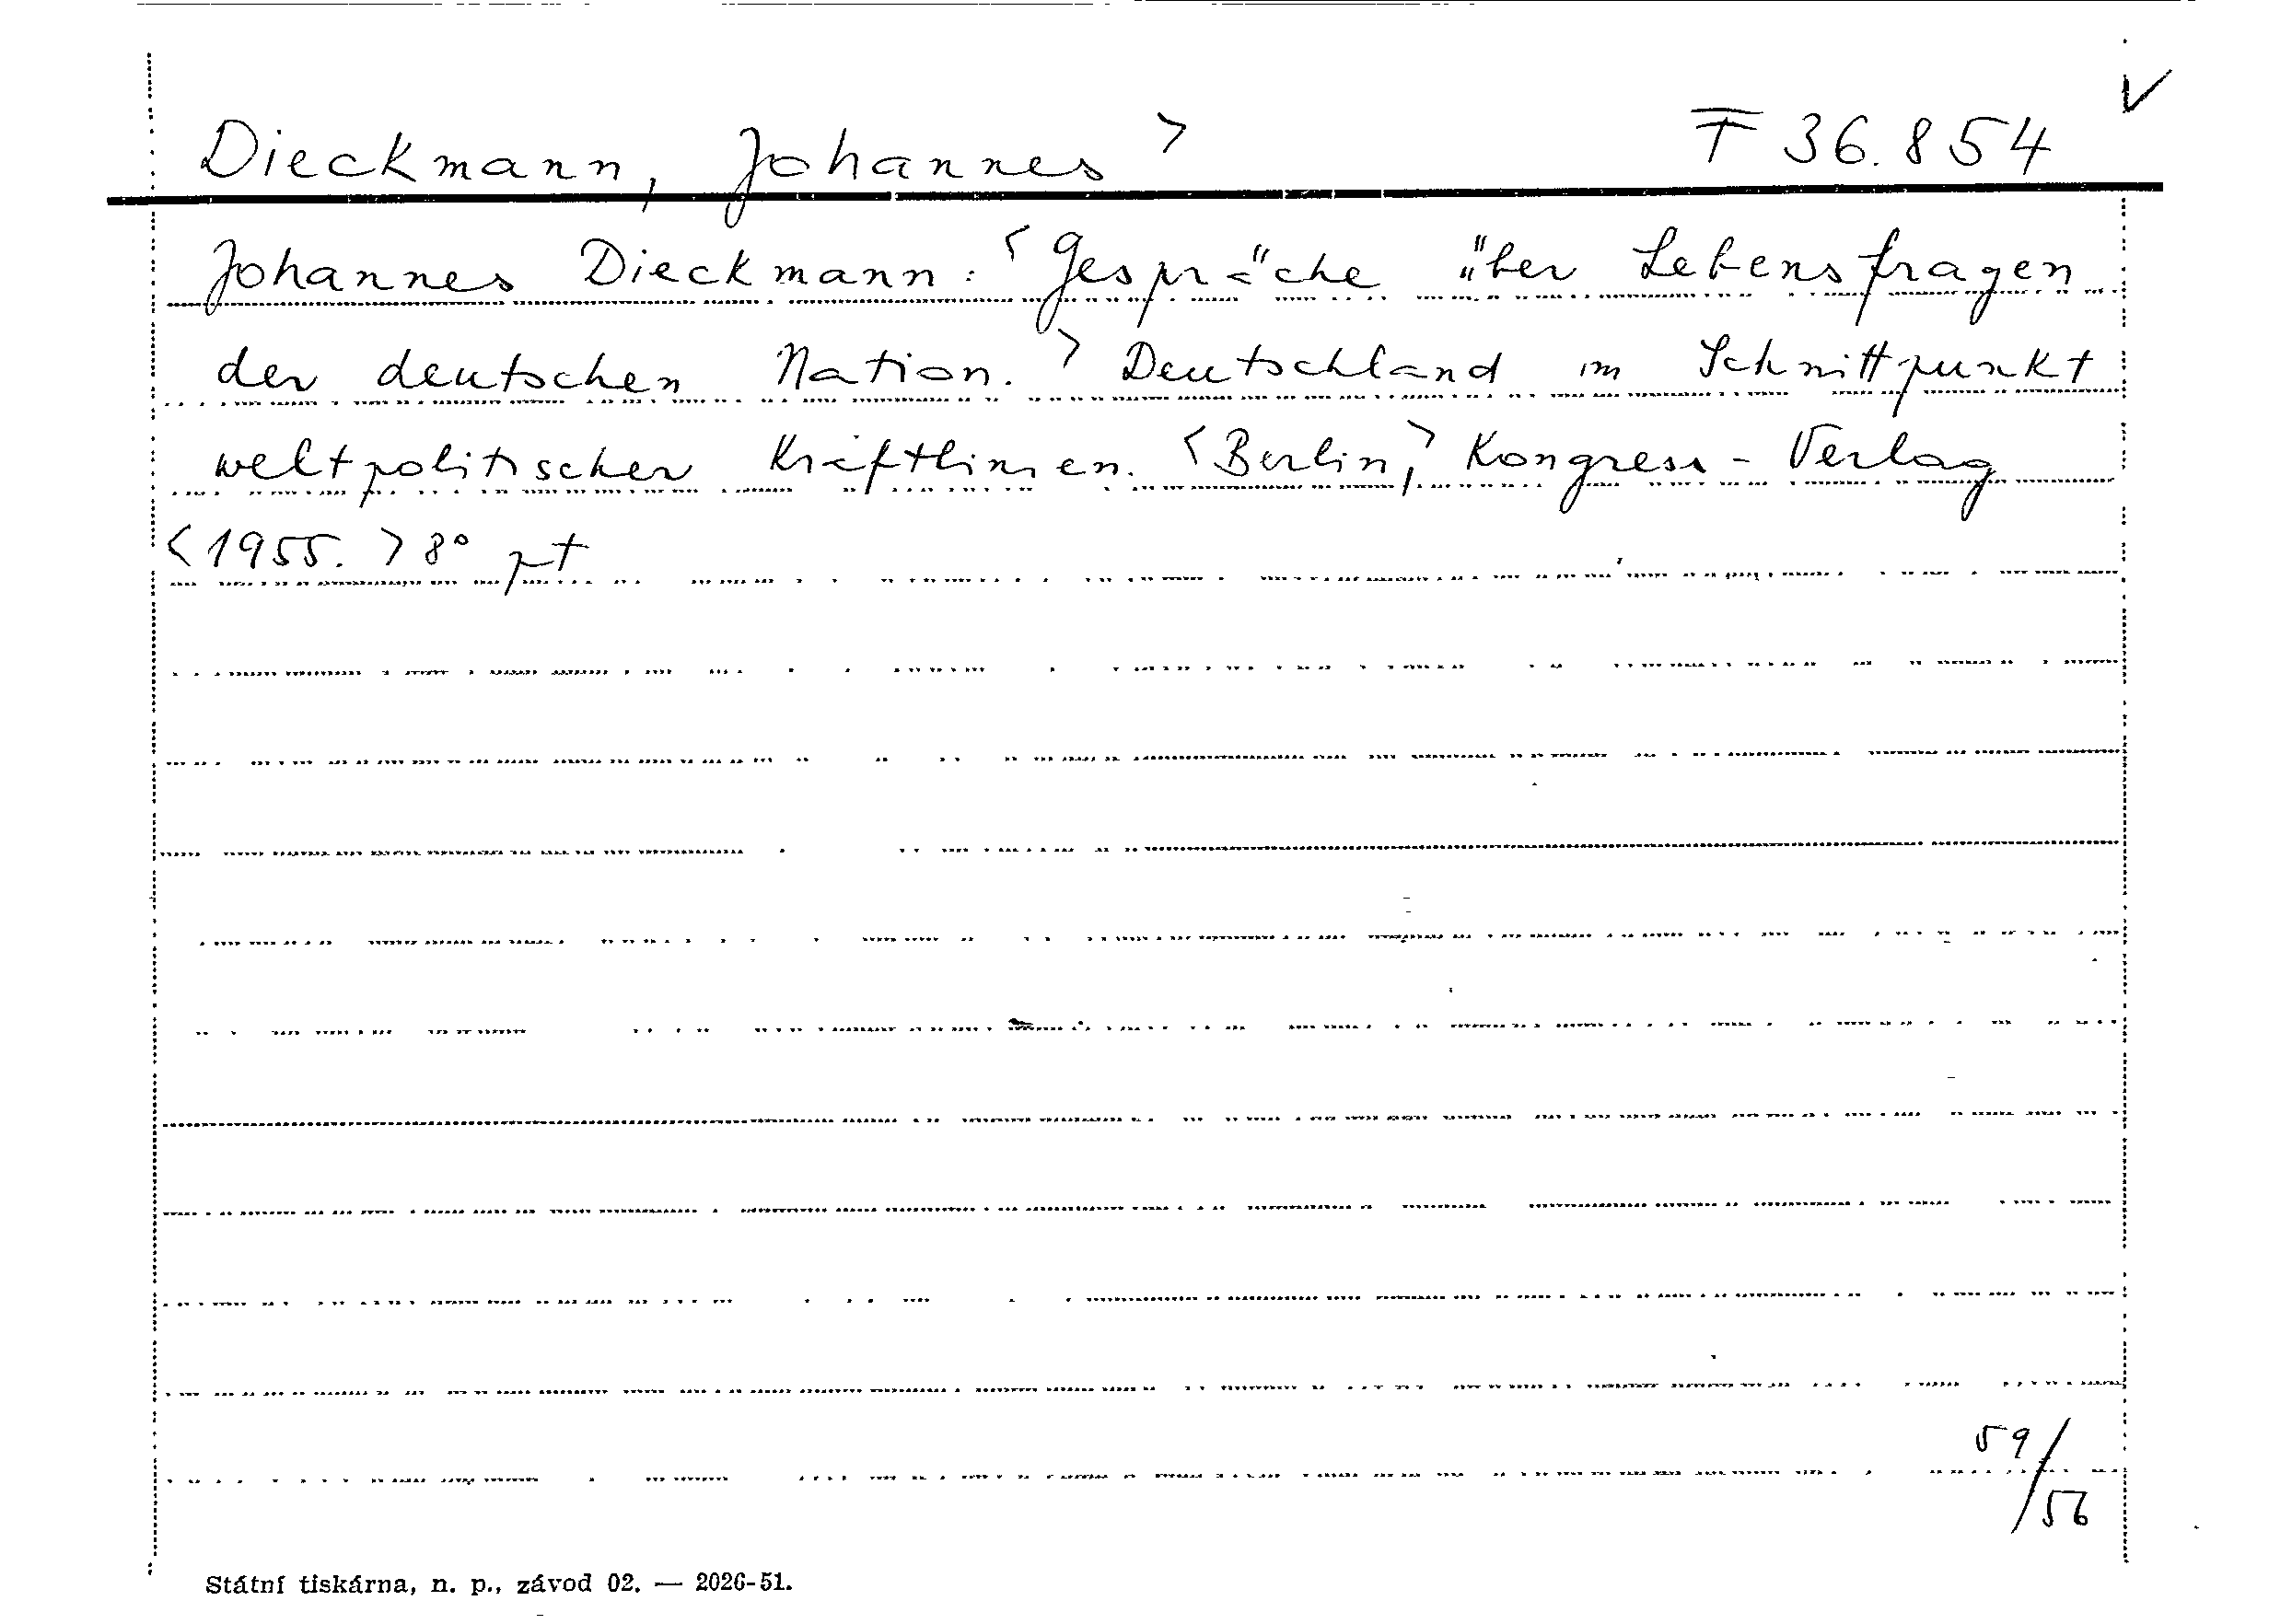 Dieckmann, Johannes > T 36.854
Johannes Dieckmann: <Gespräche über Lebensfragen
der deutschen Nation.> Deutschland im Schnittpunkt
weltpolitischer Kräftlinien. <Berlin,> Kongress-Verlag
<1955.> 8° pt
59/56
Státní tiskárna, n. p., závod 02. — 2026-51.